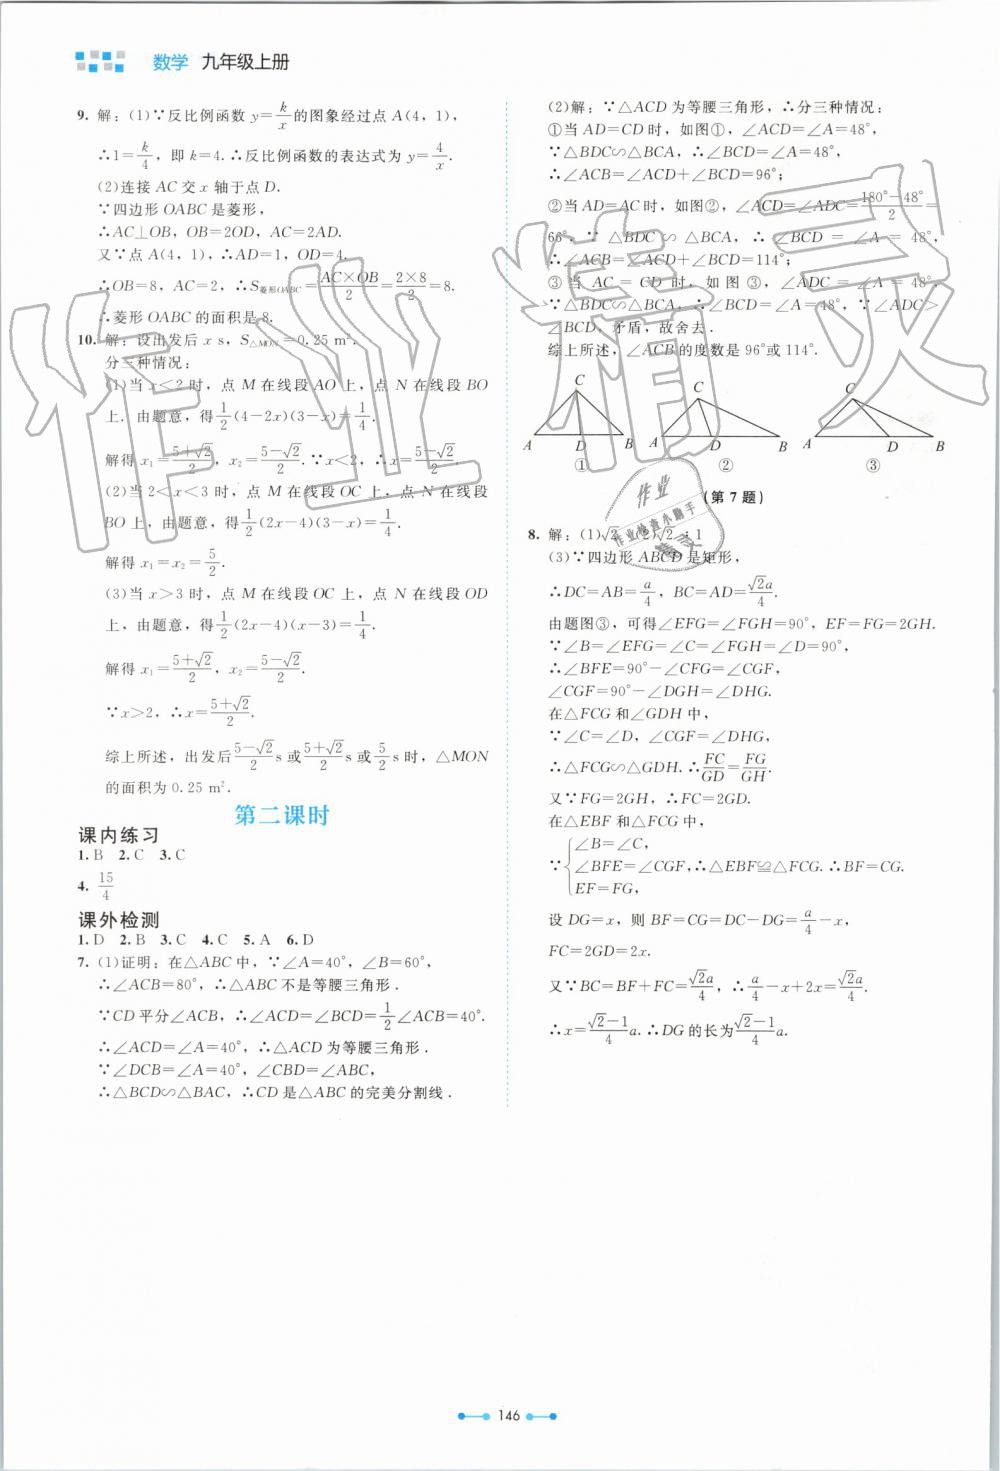 数学 九年级上册
9. 解：(1)∵反比例函数 y=k/x 的图象经过点 A(4，1)，
∴1=k/4，即 k=4.∴反比例函数的表达式为 y=4/x.
(2)连接 AC 交 x 轴于点 D.
∵四边形 OABC 是菱形，
∴AC⊥OB，OB=2OD，AC=2AD.
又∵点 A(4，1)，∴AD=1，OD=4.
∴OB=8，AC=2，∴S菱形OABC=AC×OB/2=2×8/2=8.
∴菱形 OABC 的面积是 8.
10. 解：设出发后 x s，S△MON=0.25 m².
分三种情况：
(1)当 x<2 时，点 M 在线段 AO 上，点 N 在线段 BO
上．由题意，得1/2(4-2x)(3-x)=1/4.
解得 x₁=5+√2/2，x₂=5-√2/2.∵x<2，∴x=5-√2/2.
(2)当 2<x<3 时，点 M 在线段 OC 上，点 N 在线段
BO 上，由题意，得1/2(2x-4)(3-x)=1/4.
解得 x₁=x₂=5/2.
(3)当 x>3 时，点 M 在线段 OC 上，点 N 在线段 OD
上，由题意，得1/2(2x-4)(x-3)=1/4.
解得 x₁=5+√2/2，x₂=5-√2/2.
∵x>2，∴x=5+√2/2.
综上所述，出发后5-√2/2 s或5+√2/2 s或5/2 s时，△MON
的面积为 0.25 m².
第二课时
课内练习
1. B 2. C 3. C
4. 15/4
课外检测
1. D 2. B 3. C 4. C 5. A 6. D
7. (1)证明：在△ABC 中，∵∠A=40°，∠B=60°，
∴∠ACB=80°，∴△ABC 不是等腰三角形．
∵CD 平分∠ACB，∴∠ACD=∠BCD=1/2∠ACB=40°.
∴∠ACD=∠A=40°，∴△ACD 为等腰三角形．
∵∠DCB=∠A=40°，∠CBD=∠ABC，
∴△BCD∽△BAC，∴CD 是△ABC 的完美分割线．
(2)解：∵△ACD 为等腰三角形，∴分三种情况：
①当 AD=CD 时，如图①，∠ACD=∠A=48°，
∵△BDC∽△BCA，∴∠BCD=∠A=48°，
∴∠ACB=∠ACD+∠BCD=96°；
②当 AD=AC 时，如图②，∠ACD=∠ADC=180°-48°/2=
66°．∵△BDC∽△BCA，∴∠BCD=∠A=48°，
∴∠ACB=∠ACD+∠BCD=114°；
③当 AC=CD 时，如图③，∠ADC=∠A=48°，
∵△BDC∽△BCA，∴∠BCD=∠A=48°，∵∠ADC>
∠BCD，矛盾，故舍去．
综上所述，∠ACB 的度数是 96°或 114°.
C
A D B
①
C
A D B
②
C
A D B
③
(第 7 题)
8. 解：(1)√2 (2)√2：1
(3)∵四边形 ABCD 是矩形，
∴DC=AB=a/4，BC=AD=√2a/4.
由题图③，可得∠EFG=∠FGH=90°，EF=FG=2GH.
∵∠B=∠EFG=∠C=∠FGH=∠D=90°，
∴∠BFE=90°-∠CFG=∠CGF，
∠CGF=90°-∠DGH=∠DHG.
在△FCG 和∠GDH 中，
∵∠C=∠D，∠CGF=∠DHG，
∴△FCG∽△GDH.∴FC/GD=FG/GH.
又∵FG=2GH，∴FC=2GD.
在△EBF 和△FCG 中，
∵{∠B=∠C，
∠BFE=∠CGF，∴△EBF≌△FCG.∴BF=CG.
EF=FG，
设 DG=x，则 BF=CG=DC-DG=a/4-x，
FC=2GD=2x.
又∵BC=BF+FC=√2a/4，∴a/4-x+2x=√2a/4.
∴x=√2-1/4 a.∴DG 的长为√2-1/4 a.
作业精灵
作业
作业检查小助手
146